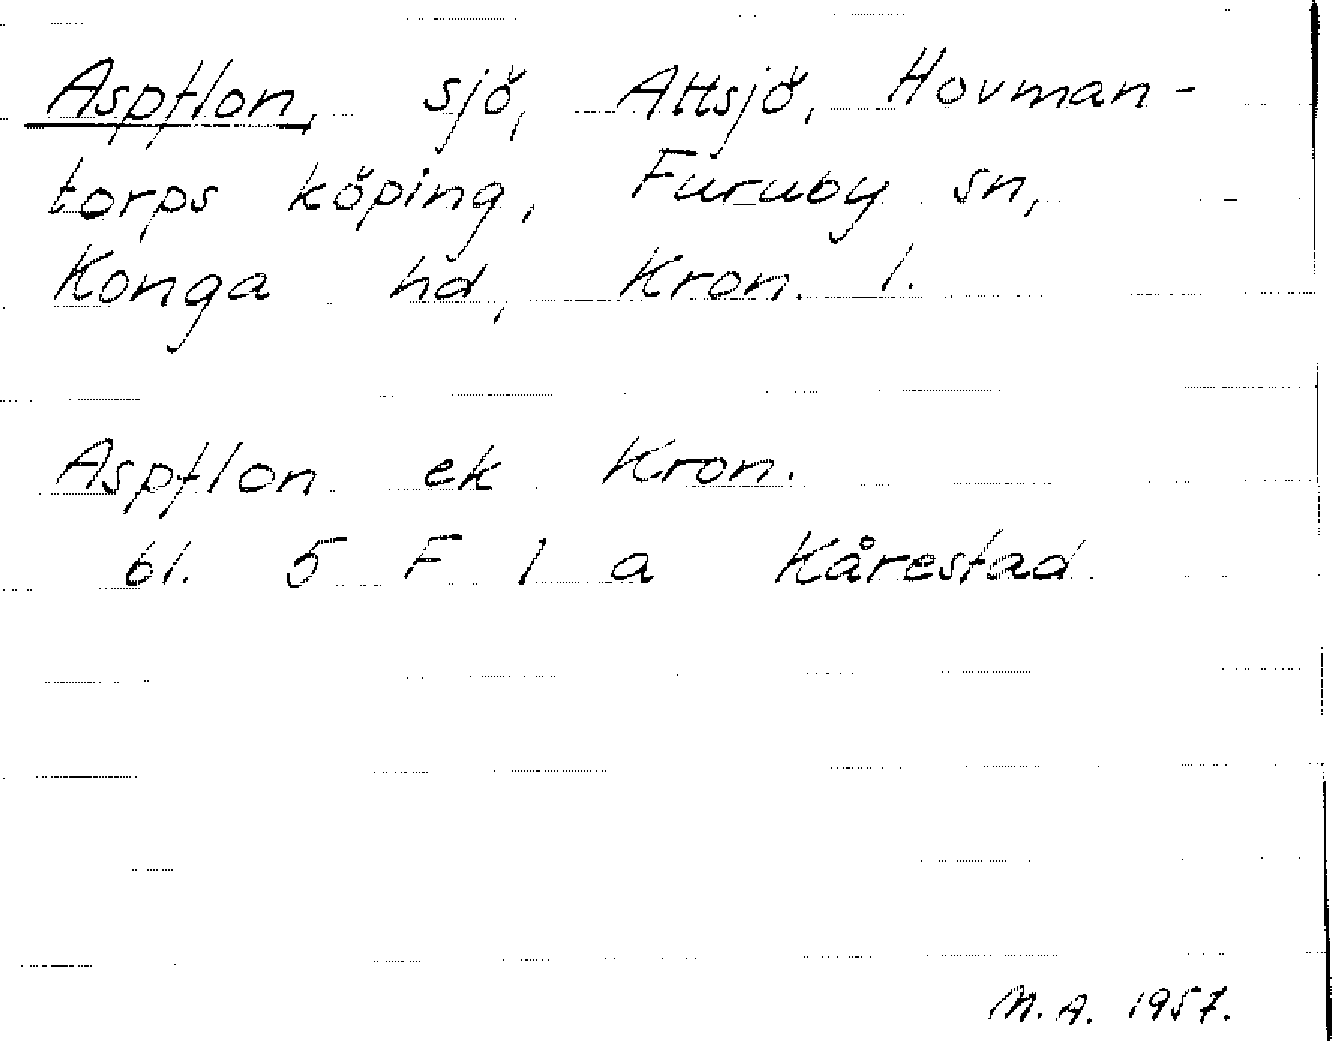 Aspflon, sjö, Attsjö, Hovman-
torps köping, Furuby sn,
Konga hd, Kron. l.
Aspflon ek Kron.
bl. 5 F 1 a Kårestad
M.A. 1957.